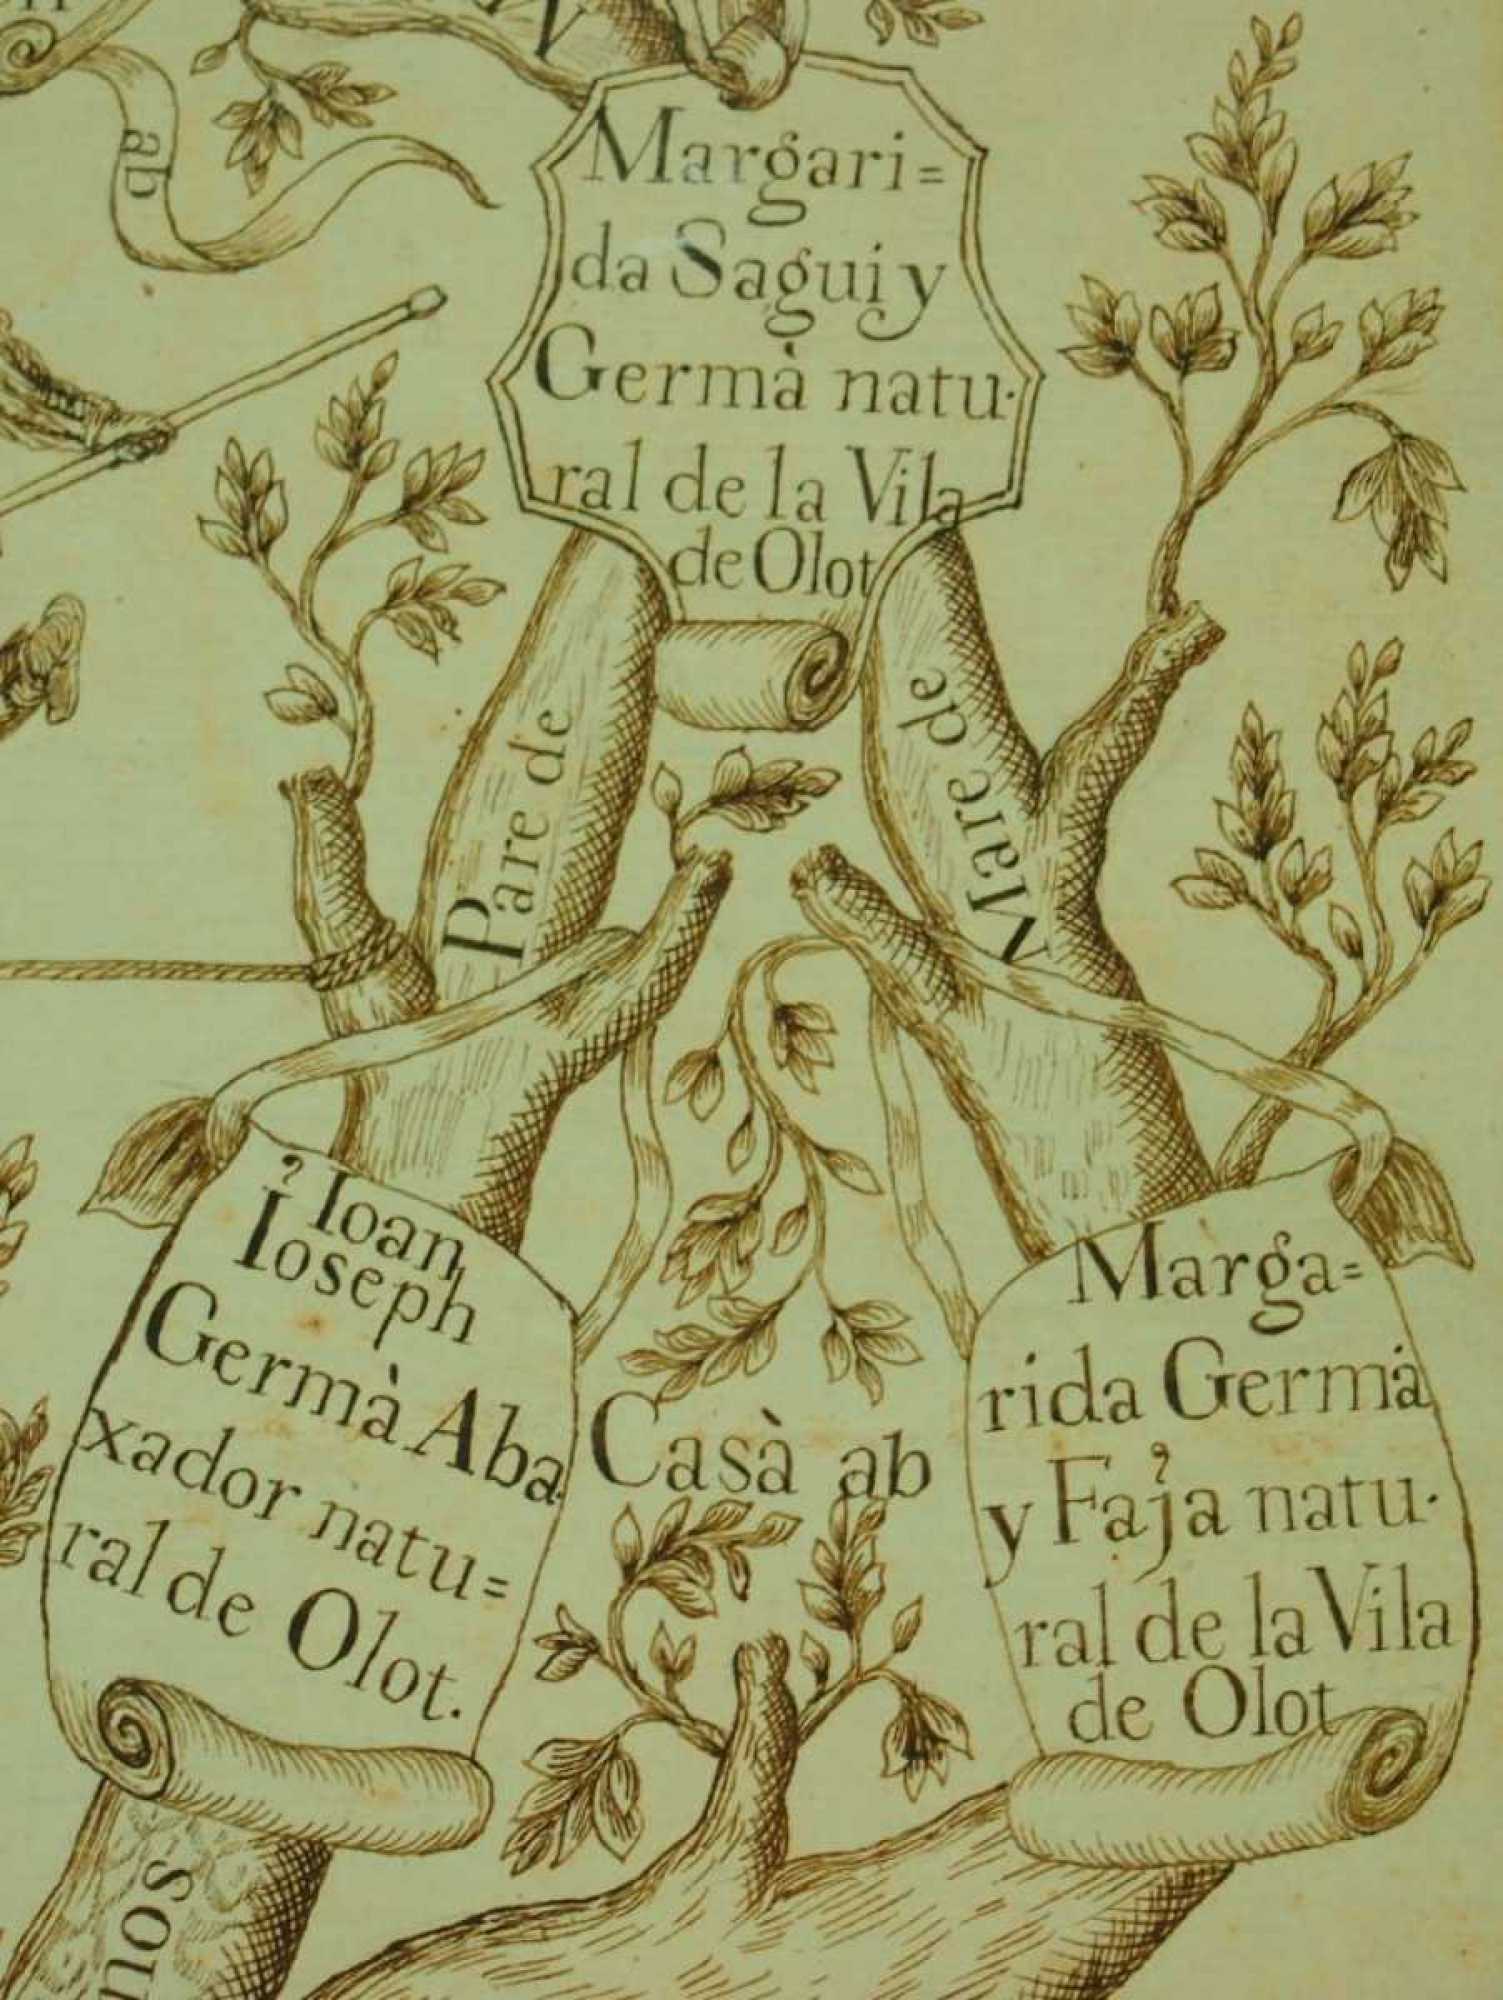 ab
Margari=
da Sagui y
Germà natu·
ral de la Vila
de Olot
Pare de
Mare de
Ioan
Ioseph
Germà Aba·
xador natu=
ral de Olot.
Casà ab
Marga=
rida Germà
y Faja natu·
ral de la Vila
de Olot